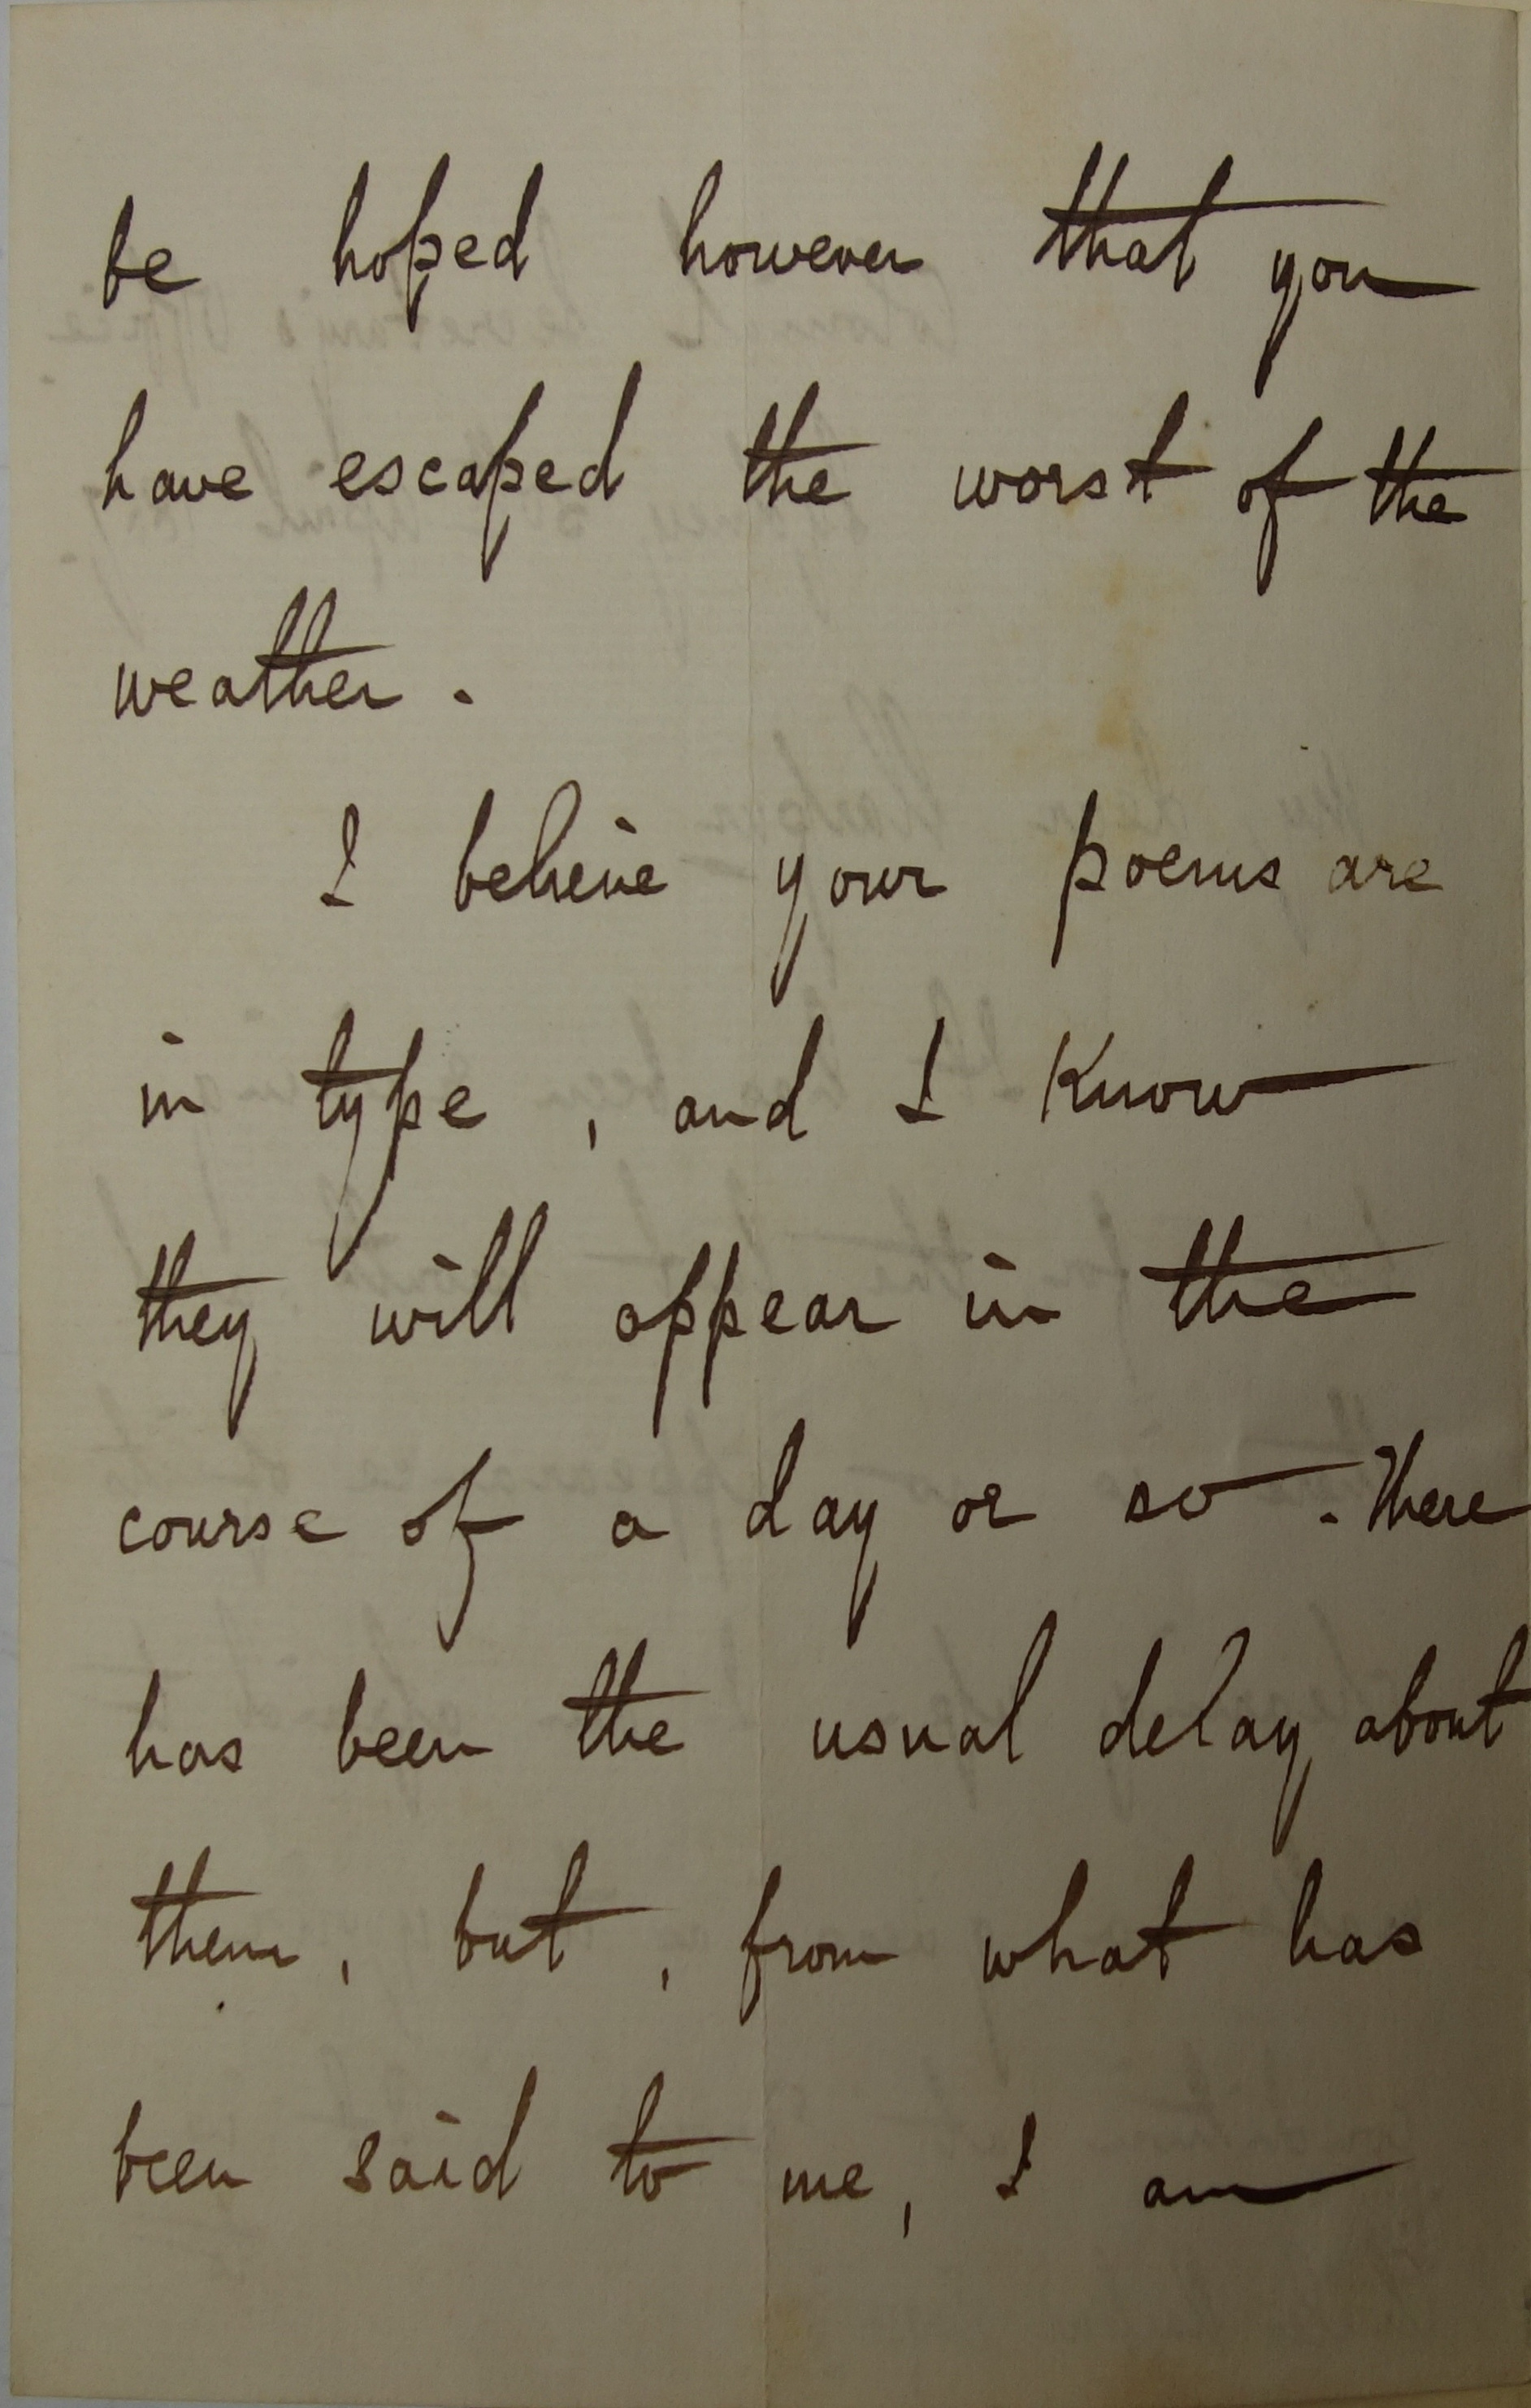 be hoped however that you
have escaped the worst of the
weather.
I believe your poems are
in type, and I Know
they will appear in the
course of a day or so. There
has been the usual delay about
them, but, from what has
been said to me, I am